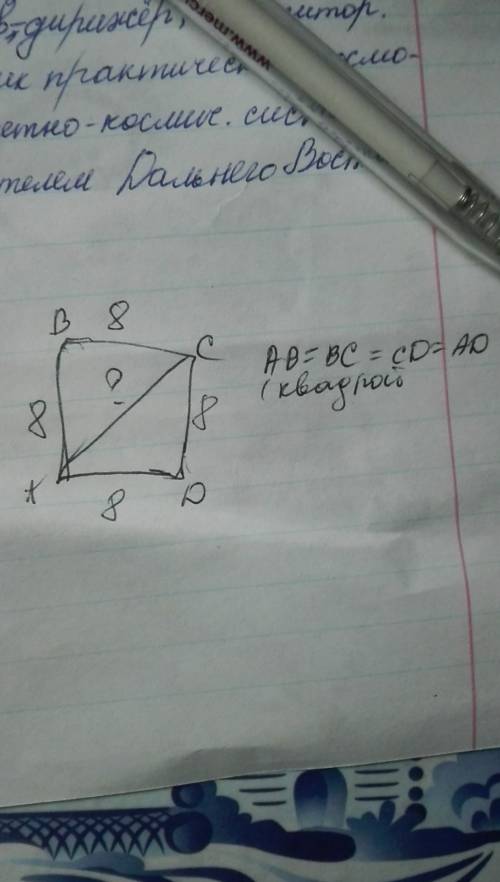 дирижёр,
практичес
www.merc
етно-космич. сис
телем Дальнего Вост
B 8 C
8 ? 8
A 8 D
AB = BC = CD = AD
(квадрат